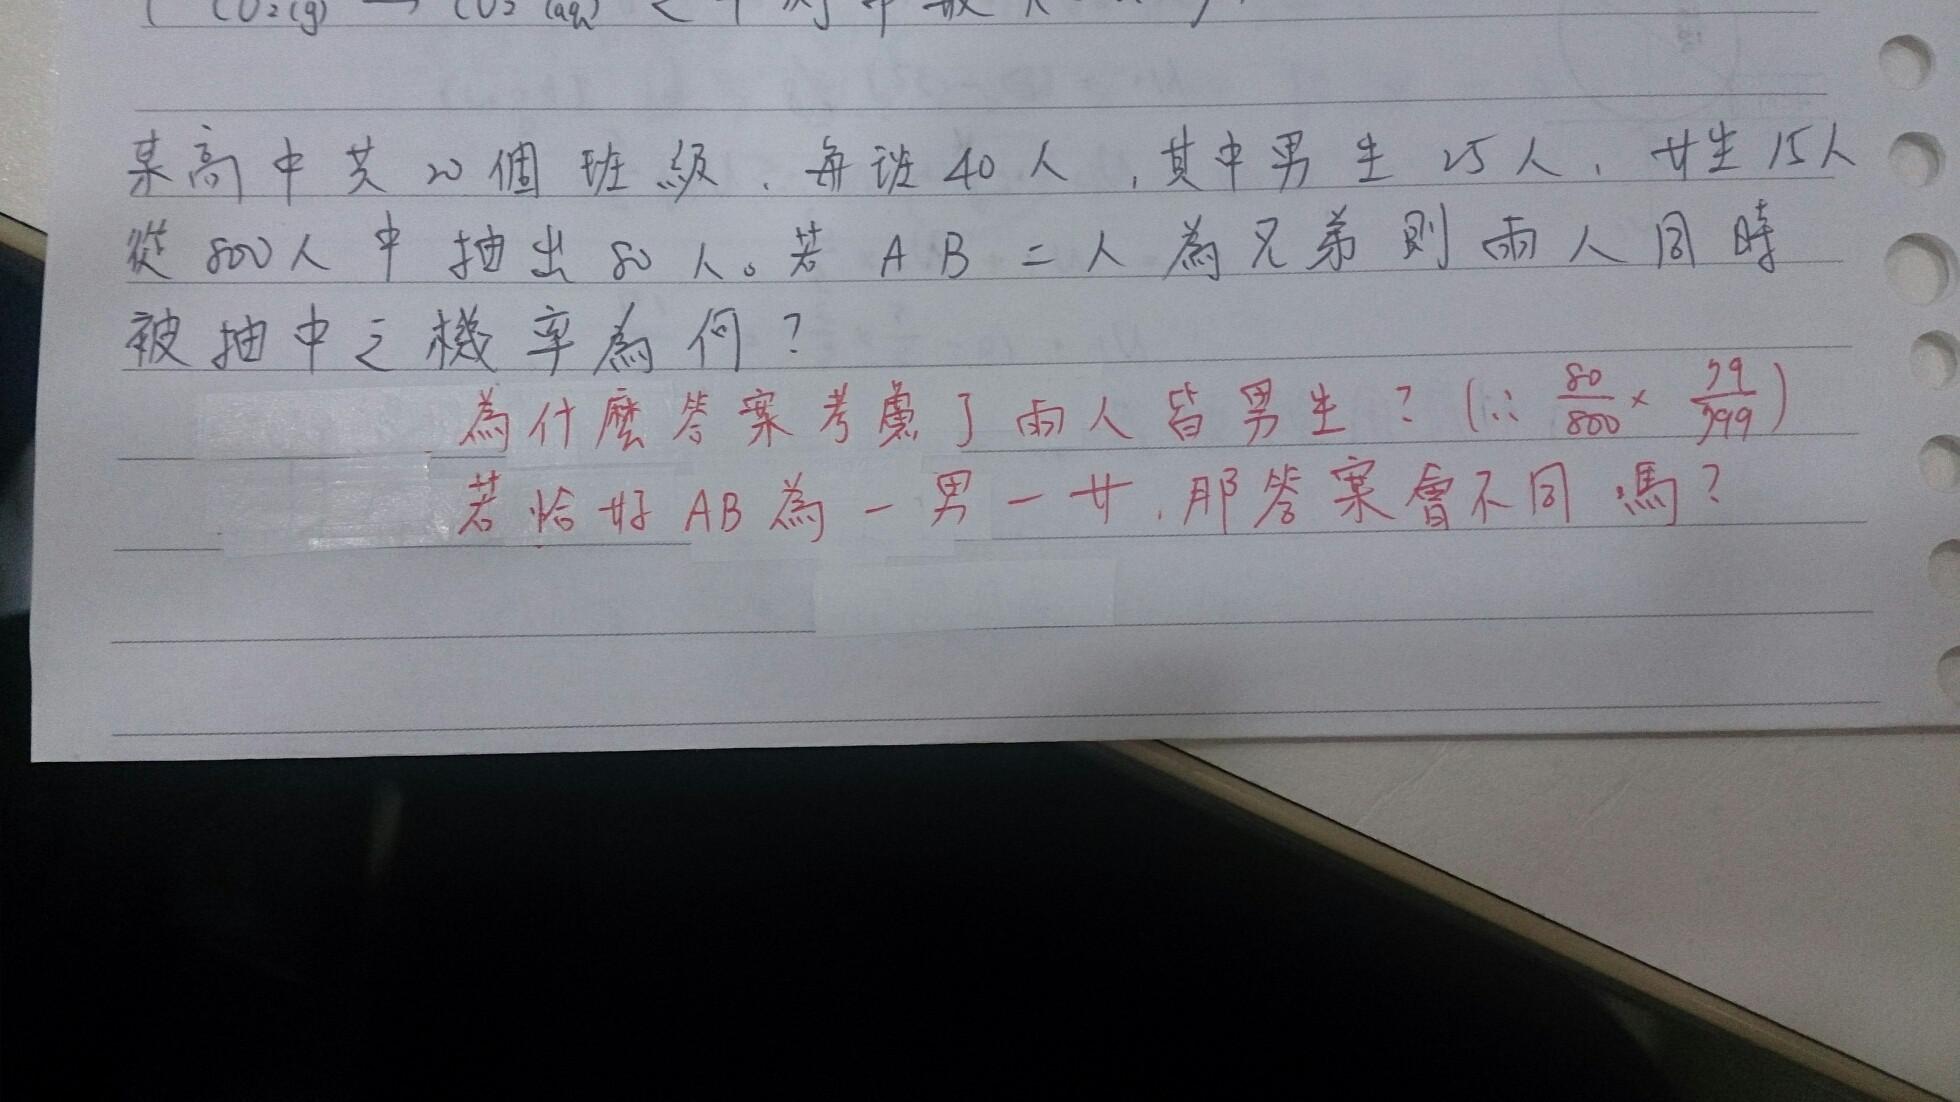 CO₂(g) → CO₂(aq) 之平
某高中共20個班級、每班40人,其中男生25人、女生15人
從800人中抽出80人。若AB二人為兄弟則兩人同時
被抽中之機率為何?
為什麼答案考慮了兩人皆男生?(∵ 80/800 × 79/799)
若恰好AB為一男一女,那答案會不同嗎?